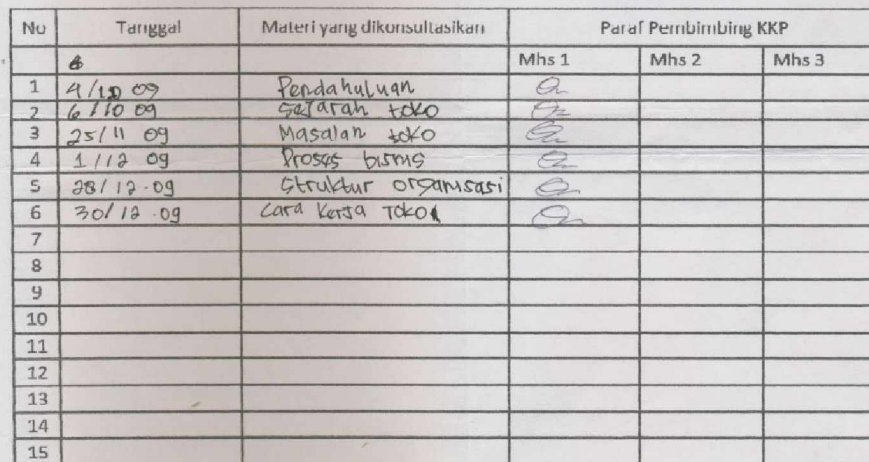 No Tanggal Materi yang dikonsultasikan Paraf Pembimbing KKP
Mhs 1 Mhs 2 Mhs 3
1 4/10 09 Pendahuluan
2 6/10 09 Sejarah toko
3 25/11 09 Masalah toko
4 1/12 09 Proses bisnis
5 28/12.09 Struktur organisasi
6 30/12.09 Cara Kerja Toko
7
8
9
10
11
12
13
14
15